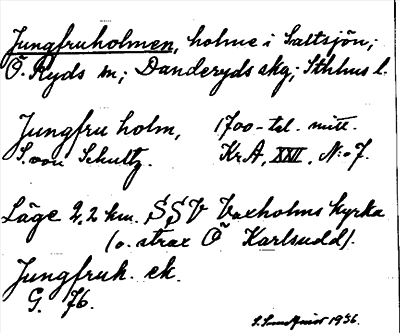 Jungfruholmen, holme i Saltsjön;
Ö. Ryds sn; Danderyds skg; Sthlms l.
Jungfru holm, 1700-tal. mitt.
S. von Schultz. Kr.A, XXII, N:o 7.
Läge 2,2 km. SSV Vaxholms kyrka
(o. strax Ö Karlsudd).
Jungfruh. ek.
G. 76.
1936.